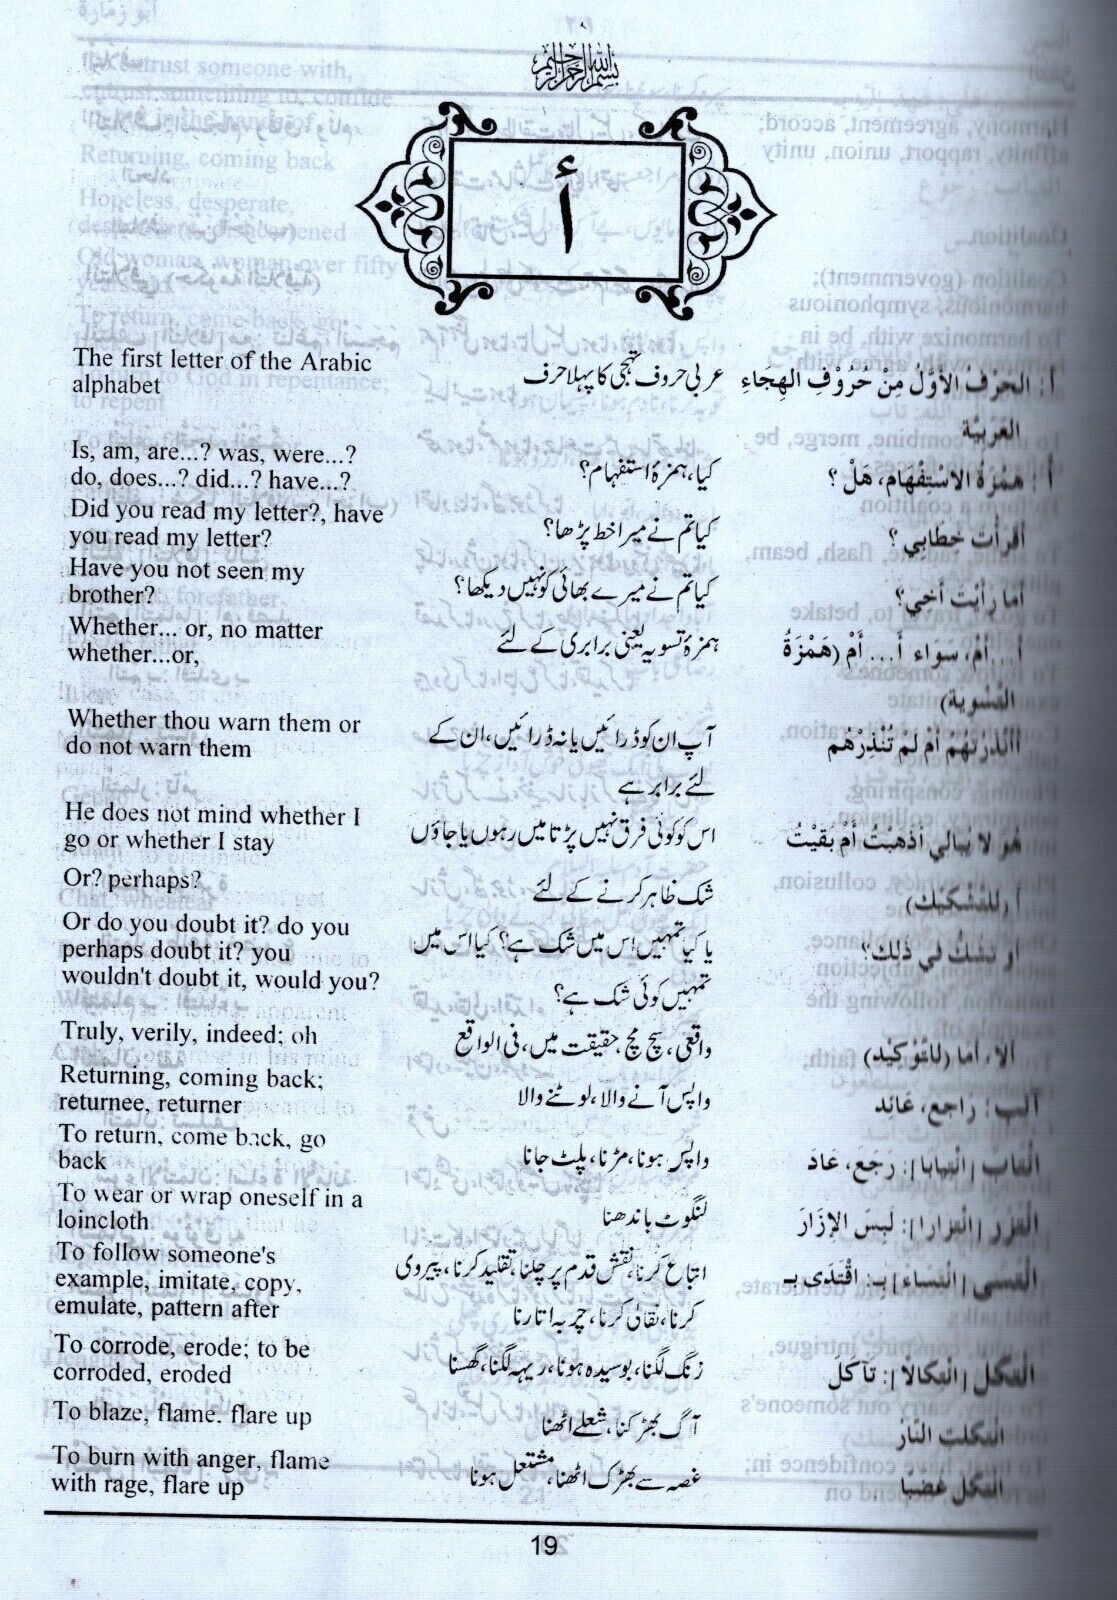 بسم الله الرحمن الرحيم
أ
أ: الحَرْفُ الأوّلُ مِنْ حُرُوْفِ الهِجَاءِ
العَرَبِيَّة
عربی حروف تہجی کا پہلا حرف
The first letter of the Arabic
alphabet
أ: هَمْزَةُ الاسْتِفْهَام، هَلْ؟
کیا، ہمزۂ استفہام؟
Is, am, are...? was, were...?
do, does...? did...? have...?
أقَرأْتَ خطابي؟
کیا تم نے میرا خط پڑھا؟
Did you read my letter?, have
you read my letter?
أمَا رَأيْتَ أخي؟
کیا تم نے میرے بھائی کو نہیں دیکھا؟
Have you not seen my
brother?
أ...أمْ، سواء أ... أمْ (هَمْزَةُ
التَّسْوِيَة)
ہمزۂ تسویہ یعنی برابری کے لئے
Whether... or, no matter
whether...or,
أأنْذَرتَهم أمْ لَمْ تُنْذِرْهُم
آپ ان کو ڈرائیں یا نہ ڈرائیں، ان کے
لئے برابر ہے
Whether thou warn them or
do not warn them
هُوَ لا يبالي أذَهَبْتُ أمْ بَقيْتُ
اس کو کوئی فرق نہیں پڑتا میں رہوں یا جاؤں
He does not mind whether I
go or whether I stay
أ (للتَّشْكِيْك)
شک ظاہر کرنے کے لئے
Or? perhaps?
أوَ تَشُكُّ في ذلك؟
یا کیا تمہیں اس میں شک ہے؟ کیا اس میں
تمہیں کوئی شک ہے؟
Or do you doubt it? do you
perhaps doubt it? you
wouldn't doubt it, would you?
ألا، أمَا (للتَّوْكِيْد)
واقعی، سچ مچ، حقیقت میں، فی الواقع
Truly, verily, indeed; oh
آئب: راجع، عَائد
واپس آنے والا، لوٹنے والا
Returning, coming back;
returnee, returner
رَجَعَ، عَادَ
واپس ہونا، مڑنا، پلٹ جانا
To return, come back, go
back
لَبِسَ الإزَارَ
لنگوٹ باندھنا
To wear or wrap oneself in a
loincloth
بـ: اقْتَدَى بـ
اتباع کرنا، نقش قدم پر چلنا، تقلید کرنا، پیروی
کرنا، نقالی کرنا، چربہ اتارنا
To follow someone's
example, imitate, copy,
emulate, pattern after
تآكلَ
زنگ لگنا، بوسیدہ ہونا، ریہہ لگنا، گھسنا
To corrode, erode; to be
corroded, eroded
النارُ
آگ بھڑکنا، شعلے اٹھنا
To blaze, flame. flare up
غضبًا
غصہ سے بھڑک اٹھنا، مشتعل ہونا
To burn with anger, flame
with rage, flare up
19